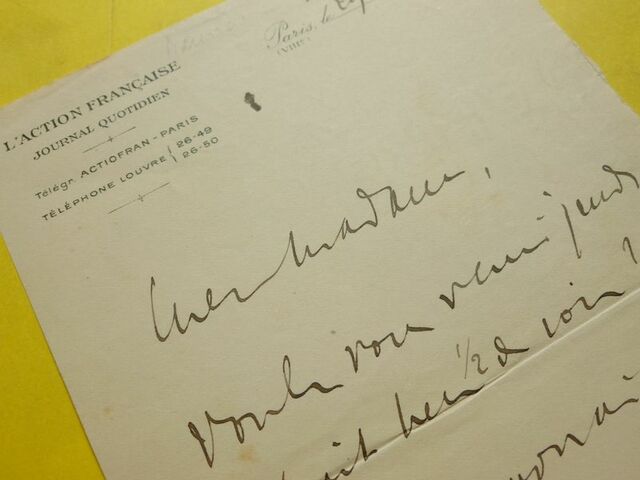 L'ACTION FRANÇAISE
JOURNAL QUOTIDIEN
Télégr. ACTIOFRAN-PARIS
TÉLÉPHONE LOUVRE { 26-49
26-50
Paris, le
(VIIIe)
Chère Madame,
Voulez vous venir jeudi
huit heures 1/2 du soir